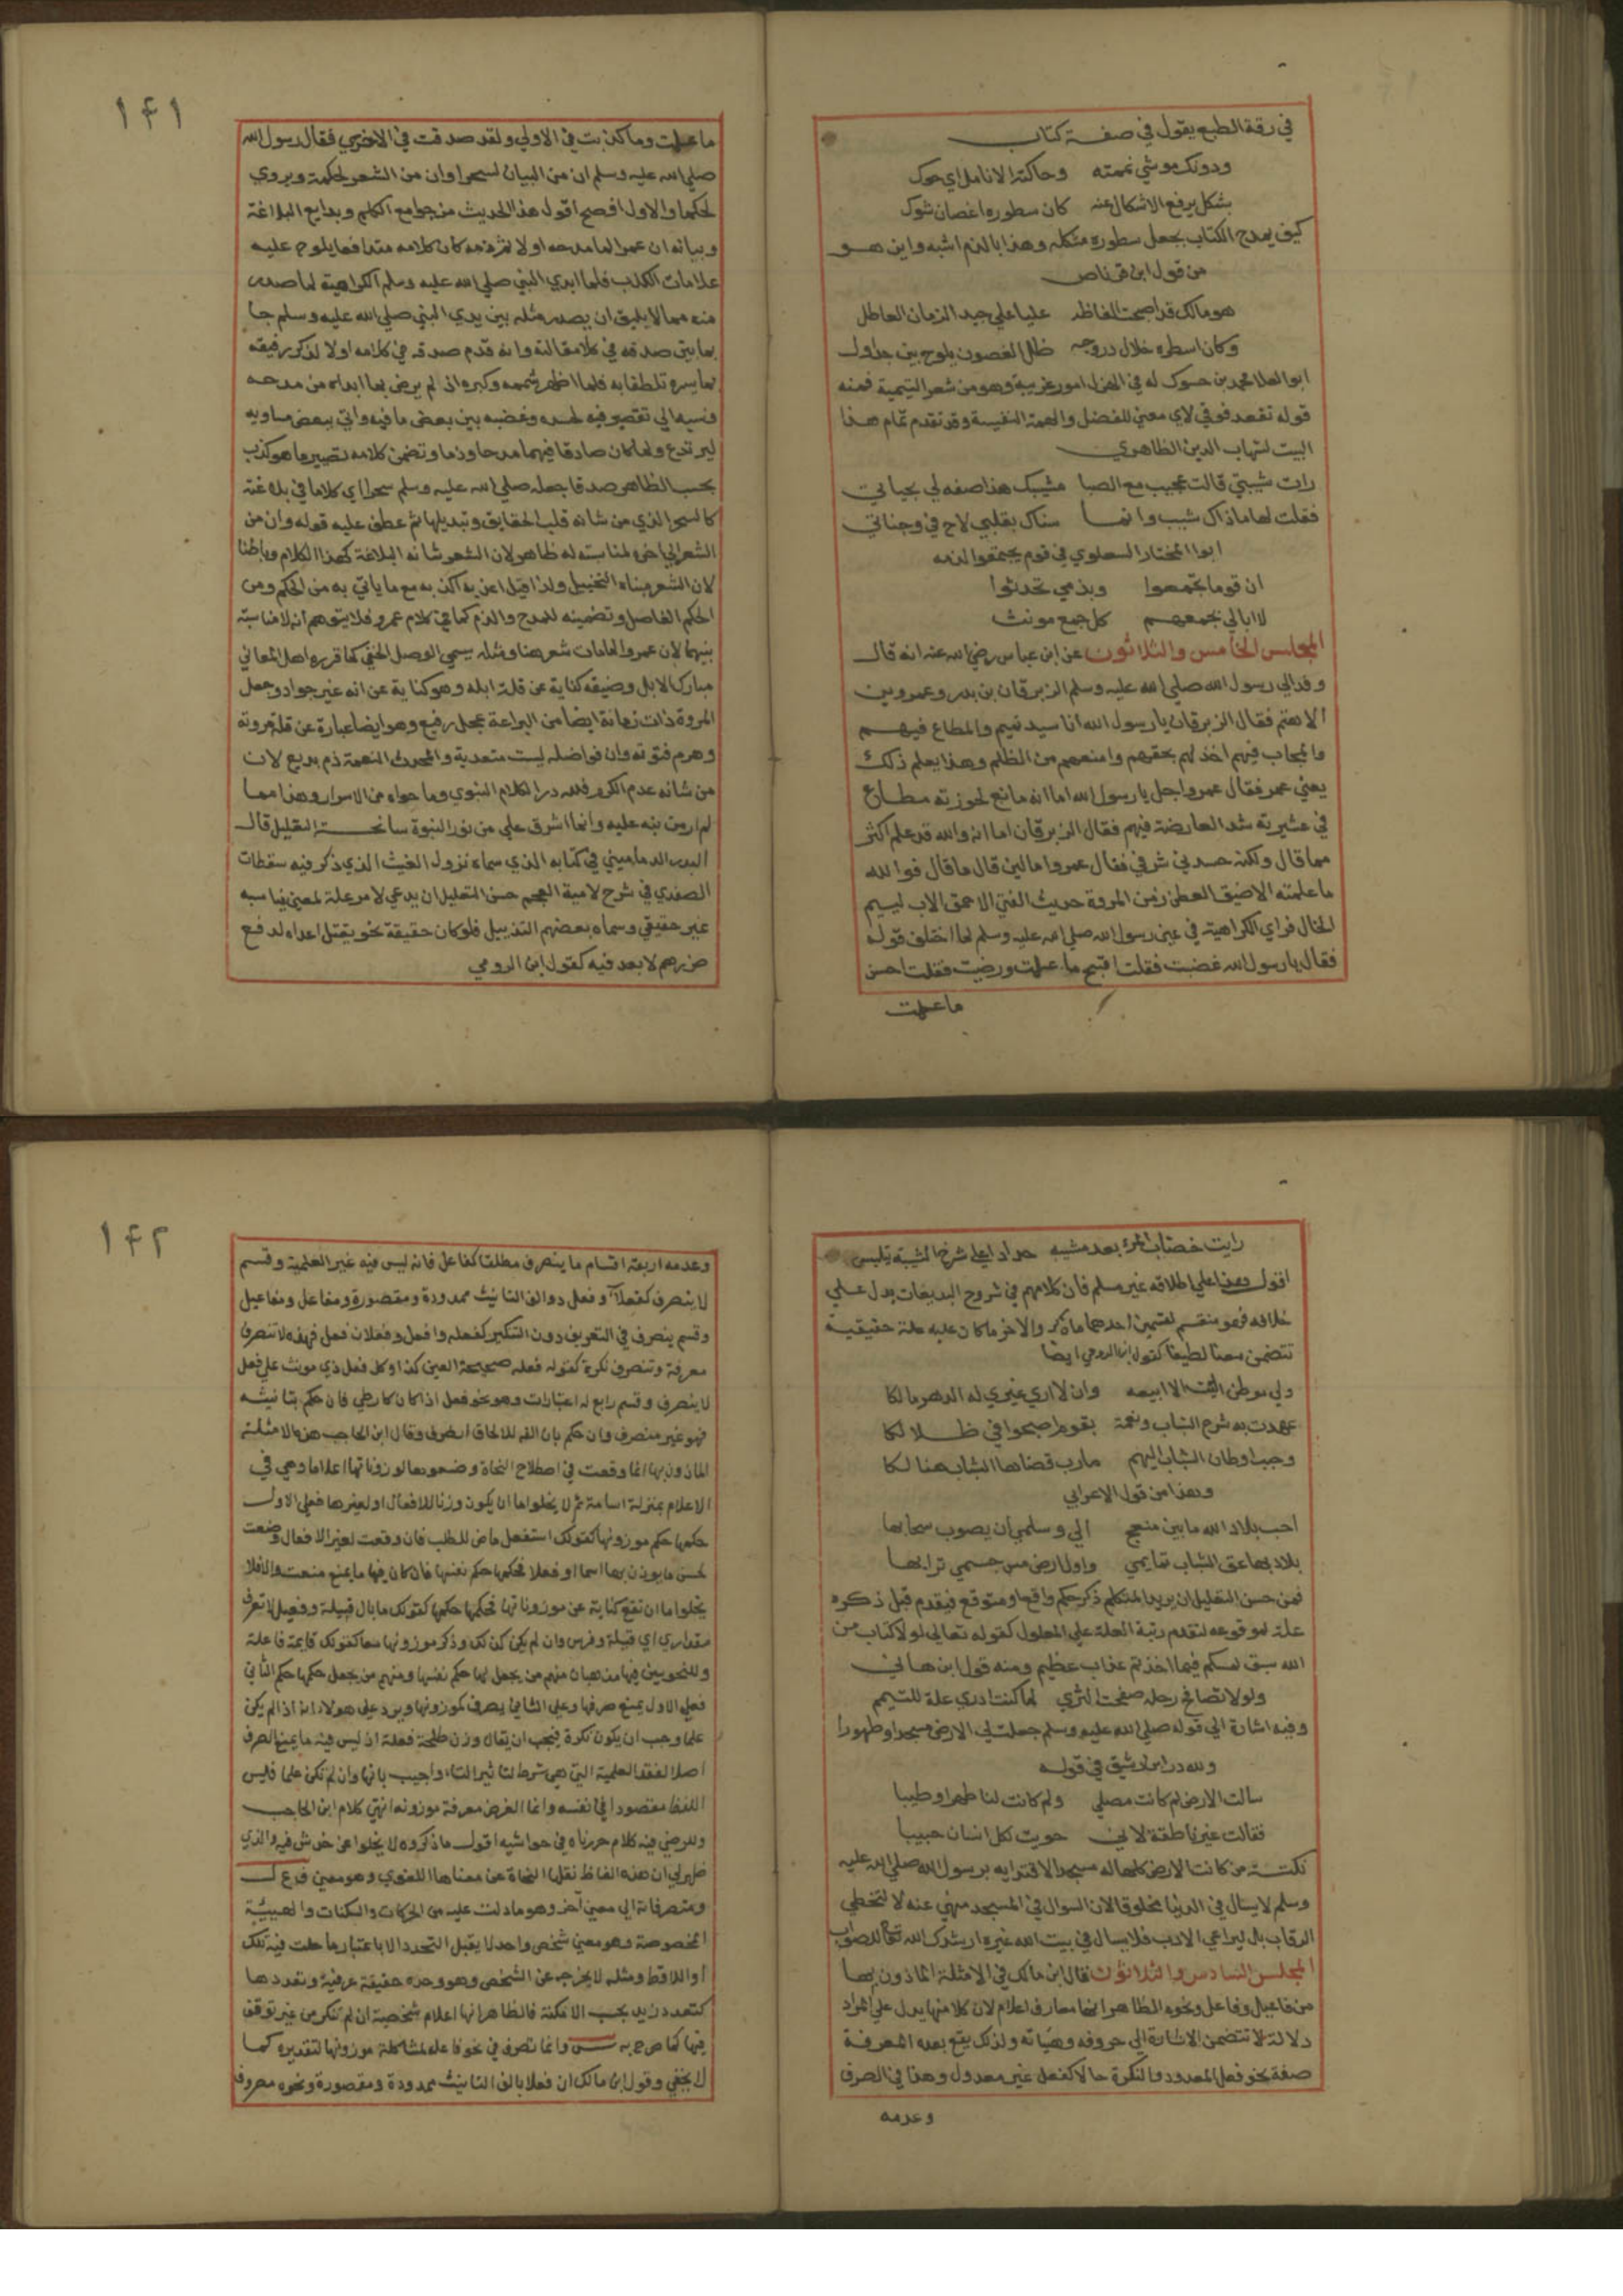 في رقة الطبع يقول في صفة كتاب
ودونك موشي نممته وحاكته الانامل اي حوك
بشكل يرفع الاشكال عنه كان سطوره اغصان شوك
كيف يمدح الكتاب بجعل سطوره مشكله وهذا بالذم اشبه واين هو
من قول ابن قرناص
هو مالك قد اصبحت الفاظه عليا علي جيد الزمان العاطل
وكان اسطره خلال دروجه ظل الغصون يلوح بين جداول
ابو العلا محمد بن حسوك له في الهزل امور غريبة وهو من شعر اليتيمية فمنه
قوله تقعد فوقي لاي معني للفضل والهمة النفيسة وقد تقدم تمام هذا
البيت لشهاب الدين الظاهري
رات شيبتي قالت عجيب مع الصبا مشيبك هذا صفه لي بحياتي
فقلت لها ماذاك شيب وانما سناك بقلبي لاح في وجناتي
ابوا المختار السعلوي في قوم يجتمعوا لذمه
ان قوما تجمعوا وبذمي تحدثوا
لا ابالي بجمعهم كل جمع مونث
المجلس الخامس والثلاثون عن ابن عباس رضي الله عنه انه قال
وفد الي رسول الله صلي الله عليه وسلم الزبرقان بن بدر وعمرو بن
الاهتم فقال الزبرقان يا رسول الله انا سيد تميم والمطاع فيهم
والمجاب فيهم اخذ لهم بحقهم وامنعهم من الظلم وهذا يعلم ذلك
يعني عمر فقال عمرو اجل يا رسول الله اما انه مانع لحوزته مطاع
في عشيرته شد العارضة فيهم فقال الزبرقان اما انه والله قد علم اكثر
مما قال ولكنه حسدني شرفي فقال عمرو اما لين قال ما قال فوالله
ما علمته الا ضيق العطن زمن المروة حديث الغني الاحمق الاب ليسيم
الخال فراي الكراهية في عين رسول الله صلي الله عليه وسلم لما اختلف قوله
فقال يا رسول الله غضبت فقلت اقبح ما علمت ورضيت فقلت احسن
ما علمت
١٤١
ما علمت وما كذبت في الاولي ولقد صدقت في الاخري فقال رسول الله
صلي الله عليه وسلم ان من البيان لسحرا وان من الشعر لحكمة ويروي
لحكما والاول افصح اقول هذا الحديث من جوامع الكلم وبدايع البلاغة
وبيانه ان عمرا لما مدحه اولا ثم ذمه كان كلامه متدافعا يلوح عليه
علامات الكذب فلما ابدي النبي صلي الله عليه وسلم الكراهية لما صدر
منه مما لا يليق ان يصدر مثله بين يدي النبي صلي الله عليه وسلم جا
بما يبين صدقه في كلا مقالته وانه قدم صدقه في كلامه اولا لذكر رفيقه
بما يسره تلطفا به فلما اظهر شممه وكبره اني لم يرض بما ابداه من مدحه
ونسبه الي تقصير فيه لحسده وغضبه بين بعض ما فيه واتي ببعض مساويه
ليرتدع ولما كان صادقا فيهما مدحا وذما وتضمن كلامه تصيير ما هو كذب
بحسب الظاهر صدقا جعله صلي الله عليه وسلم سحرا اي كلاما في بلاغته
كالسحر الذي من شانه قلب الحقايق وتبديلها ثم عطف عليه قوله وان من
الشعر الي اخره لمناسبته له ظاهر لان الشعر شانه البلاغة كهذا الكلام وباطنا
لان الشعر مبناه التخييل ولذا قيل اعذبه اكذبه مع ما ياتي به من الحكم ومن
الحكم الفاصل وتضمينه للمدح والذم كما في كلام عمرو فلا يتوهم انه لا مناسبة
بينهما لان عمروا لما مات شعر هنا ومثله يسمي الوصل الخفي كما قرره اهل المعاني
مبارك الابل وضيقه كناية عن قلة ابله وهو كناية عن انه غير جواد وجعل
المروة ذات زمانة ايضا من البراعة بمحل رفيع وهو ايضا عبارة عن قلة مروته
وهرم فتوته وان فواضله ليست متعدية والمحدث النعمة ذم بديع لان
من شانه عدم الكرم فلله در الكلام النبوي وما حواه من الاسرار وهذا مما
لم ار من نبه عليه وانما اشرق علي من نور النبوة سانحة التعليل قال
البدر الدماميني في كتابه الذي سماه نزول الغيث الذي ذكر فيه سقطات
الصفدي في شرح لامية العجم حسن التعليل ان يدعي لامر علة لمعني يناسبه
غير حقيقي وسماه بعضهم التذييل فلو كان حقيقة نحو يقتل اعداه لدفع
ضررهم لا بعد فيه كقول ابن الرومي
رايت خضاب المرء بعد مشيبه حدادا علي شرخ الشبيبة يلبس
اقول وهذا علي اطلاقه غير مسلم فان كلامهم في شروح البديعات يدل علي
خلافه فهو منقسم لقسمين احدهما ما ذكر والاخر ما كان عليه علة حقيقية
تتضمن معنا لطيفا كقول ابن الرومي ايضا
ولي موطن اليت الا ابيعه وان لا اري غيري له الدهر مالكا
عهدت به شرح الشباب ونعمة بقوم اصبحوا في ظلالكا
وحبب اوطان الشباب اليهم مارب قضاها الشباب هنالكا
وهذا من قول الاعرابي
احب بلاد الله ما بين منعج الي وسلمي ان يصوب سحابها
بلاد بها عق الشباب تمايمي واول ارض مس جسمي ترابها
فمن حسن التعليل ان يريد المتكلم ذكر حكم واقع او متوقع فيقدم قبل ذكره
علة لوقوعه لتقدم رتبة العلة علي المعلول كقوله تعالي لولا كتاب من
الله سبق لمسكم فيما اخذتم عذاب عظيم ومنه قول ابن هاني
ولو لا تصافح رجله صفحة الثري لما كنت ادري علة للتيمم
وفيه اشارة الي قوله صلي الله عليه وسلم جعلت لي الارض مسجدا وطهورا
ولله در ابن رشيق في قوله
سالت الارض لم كانت مصلي ولم كانت لنا طهرا وطيبا
فقالت غير ناطقة لاني حويت لكل انسان حبيبا
نكتة من كانت الارض كلها له مسجد الاقتدايه برسول الله صلي الله عليه
وسلم لا يسال في الدنيا مخلوقا لان السوال في المسجد منهي عنه لا لتخطي
الرقاب بل ليراعي الادب فلا يسال في بيت الله غيره ارشدك الله تعالي للصواب
المجلس السادس والثلاثون قال ابن مالك في الامثلة الماذون بها
من فاعيل وفاعل ونحوه الظاهر انها معارف اعلام لان كلا منها يدل علي المراد
دلالة لا تتضمن الاشارة الي حروفه وهياته ولذلك يقع بعده المعرفة
صفة نحو فعل المعدود والنكرة حالا كفعل غير معدول وهذا في الصرف
وعدمه
١٤٢
وعدمه اربعة اقسام ما ينصرف مطلقا كفاعل فانه ليس فيه غير العلمية وقسم
لا ينصرف كفعلآ وفعلي ذو الف التانيث ممدودة ومقصورة ومفاعل ومفاعيل
وقسم ينصرف في التعريف دون التنكير كفعله وافعل وفعلان فعلي فهذه لا تنصرف
معرفة وتنصرف نكرة كقوله فعله صحيحة العين كذا وكل فعل ذي مونث علي فعلي
لا ينصرف وقسم رابع له اعتبارات وهو نحو فعلي اذا كان كارطي فان حكم بتانيثه
فهو غير منصرف وان حكم بان الفه للالحاق انصرف وقال ابن الحاجب هذه الامثلة
الماذون بها انما وقعت في اصطلاح النحاة وضعوها لوزوناتها اعلاما وهي في
الاعلام بمنزلة اسامة ثم لا يخلوا ما ان يكون وزنا للافعال او لغيرها فعلي الاول
حكمها حكم موزونها كقولك استفعل ماض للطلب فان وقعت لغير الافعال وضعت
لجنس ما يوزن بها اسما او فعلا فحكمها حكم نفسها فان كان فيها ما يمنع منعت والا فلا
يخلوا ما ان تقع كناية عن موزوناتها فحكمها حكمها كقولك ما بال قبيلة وفعيل لا تعرف
مقداري اي قبيلة وفرس وان لم يكن كذلك وذكر موزونها معها كقولك قايمة فاعلة
وللنحويين فيها مذهبان منهم من يجعل لها حكم نفسها ومنهم من يجعل حكمها حكم الثاني
فعلي الاول يمنع صرفها وعلي الثاني يصرف كموزونها ويرد علي هولا انه اذا لم يكن
علما وجب ان يكون نكرة فيجب ان يقال وزن طلحة فعلة اذ ليس فيه ما يمنع الصرف
اصلا لفقد العلمية التي هي شرط لتاثير التاء واجيب بانها وان لم تكن علما فليس
اللفظ مقصودا في نفسه وانما الغرض معرفة موزونه انتهي كلام ابن الحاجب
وللرضي فيه كلام حررناه في حواشيه اقول ما ذكروه لا يخلوا عن خدش فيه والذي
ظهر لي ان هذه الفاظ نقلها النحاة عن معناها اللغوي وهو معين فرع ل
ومتصرفاته الي معني آخر وهو ما دلت عليه من الحركات والسكنات والهيبيئة
المخصوصة وهو معني شخص واحد لا يقبل التعدد الا باعتبار ما حلت فيه تلك
او اللاقط ومثله لا يخرجه عن الشخص وهو وحده حقيقة عرفية وتعددها
كتعدد زيد بحسب الامكنة فالظاهر انها اعلام شخصية ان لم تنكر من غير توقف
فيها كما صرح به س وانما تصرف في نحو فاعله لمشاكلة موزونها لتقديره كما
لا يخفي وقول ابن مالك ان فعلا بالف التانيث ممدودة ومقصورة ونحوه معروف